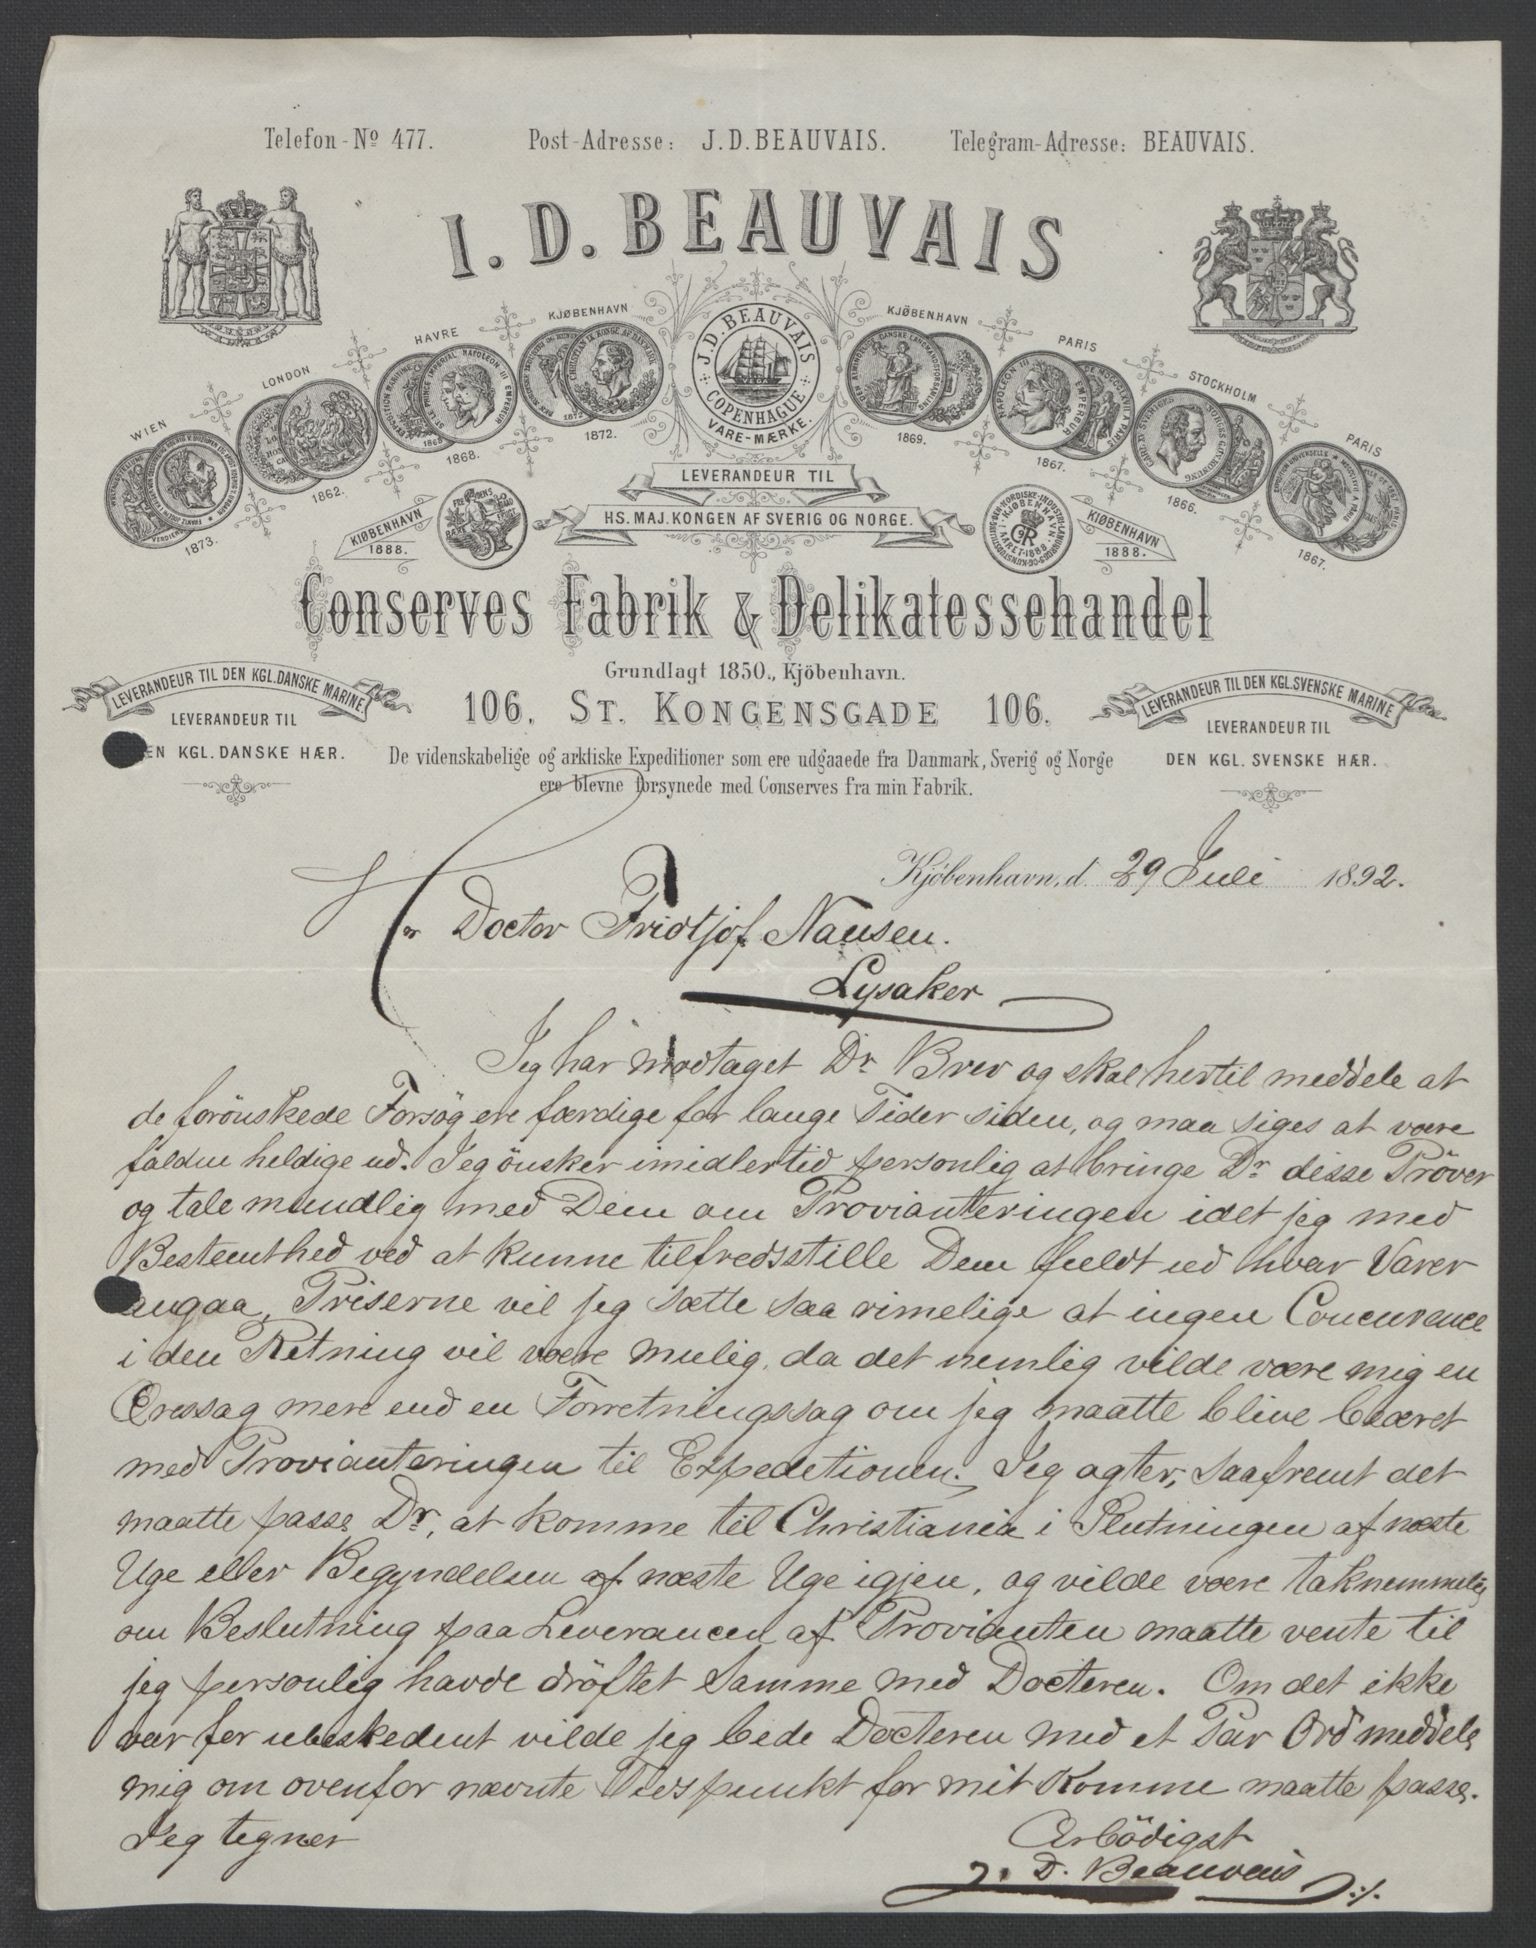 Telefon-No 477. Post-Adresse: J.D. BEAUVAIS. Telegram-Adresse: BEAUVAIS.
I. D. BEAUVAIS
WIEN
1873.
LONDON
1862.
HAVRE
1868.
KJØBENHAVN
1872.
J.D. BEAUVAIS
VEGA
COPENHAGUE
VARE-MÆRKE.
KJØBENHAVN
1869.
PARIS
1867.
STOCKHOLM
1866.
PARIS
1867.
LEVERANDEUR TIL
HS. MAJ. KONGEN AF SVERIG OG NORGE.
KIØBENHAVN
1888.
KIØBENHAVN
1888.
Conserves Fabrik & Delikatessehandel
Grundlagt 1850., Kjöbenhavn.
106. ST. KONGENSGADE 106.
LEVERANDEUR TIL DEN KGL. DANSKE MARINE.
LEVERANDEUR TIL
EN KGL. DANSKE HÆR.
LEVERANDEUR TIL DEN KGL. SVENSKE MARINE
LEVERANDEUR TIL
DEN KGL. SVENSKE HÆR.
De videnskabelige og arktiske Expeditioner som ere udgaaede fra Danmark, Sverig og Norge
ere blevne forsynede med Conserves fra min Fabrik.
Kjöbenhavn, d. 29 Juli 1892.
Hr Doctor Fridtjof Nansen.
Lysaker
Jeg har modtaget Dr Brev og skal hertil meddele at
de forönskede Forsög ere færdige for lange Tider siden, og maa siges at være
faldne heldige ud. Jeg önsker imidlertid personlig at bringe Dr disse Pröver
og tale mundlig med Dem om Provianteringen idet jeg med
Bestemthed ved at kunne tilfredsstille Dem fuldt ud hvar Varer
angaa, Priserne vil jeg sætte saa rimelige at ingen Concurence
i den Retning vil være mulig, da det nemlig vilde være mig en
Æressag mere end en Forretningssag om jeg maatte blive beæret
med Provianteringen til Expeditionen. Jeg agter, saafremt det
maatte passe Dr, at komme til Christiania i Slutningen af næste
Uge eller Begyndelsen af næste Uge igjen, og vilde være taknemmelig
om Beslutning paa Leverancen af Provianten maatte vente til
jeg personlig havde dröftet Samme med Docteren. Om det ikke
var for ubeskedent vilde jeg bede Docteren med et Par Ord meddele
mig om ovenfor nævnte Tidspunkt for mit Komme maatte passe.
Jeg tegner Ærbödigst
J. D. Beauvais